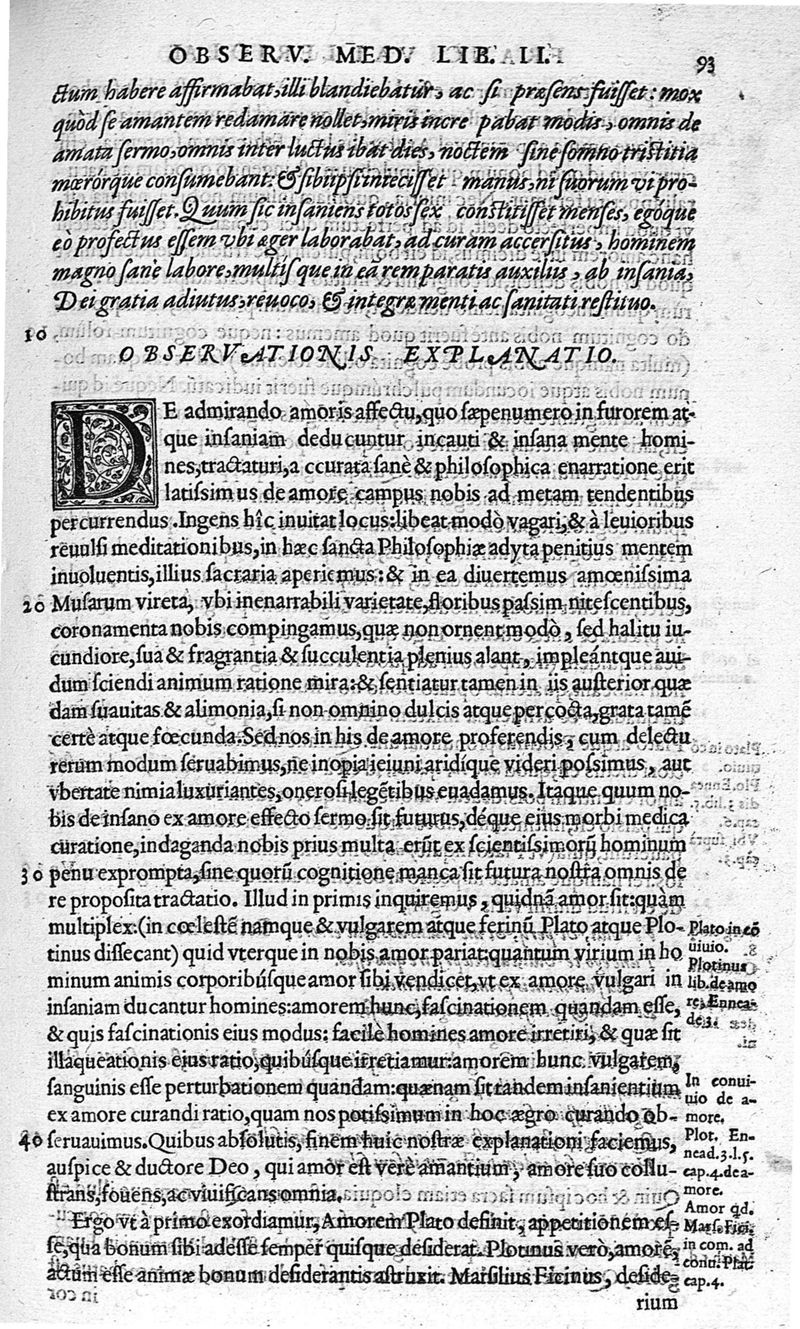 OBSERV. MED. LIB. II. 93
ctum habere affirmabat, illi blandiebatur, ac si præsens fuisset: mox
quòd se amantem redamare nollet, miris incre pabat modis, omnis de
amata sermo, omnis inter luctus ibat dies, noctem sine somno tristitia
mœrórque consumebant: & sibi ipsi intecisset manus, ni suorum vi pro-
hibitus fuisset. Quum sic insaniens totos sex constitisset menses, egóque
eò profectus essem vbi æger laborabat, ad curam accersitus, hominem
magno sanè labore, multis que in eā rem paratis auxiliis, ab insania,
Dei gratia adiutus, reuoco, & integræ menti ac sanitati restituo.
10
OBSERVATIONIS EXPLANATIO.
DE admirando amoris affectu, quo sæpenumero in furorem at-
que insaniam dedu cuntur incauti & insana mente homi-
nes, tractaturi, a ccurata sanè & philosophica enarratione erit
latissimus de amore campus nobis ad metam tendentibus
percurrendus. Ingens hîc inuitat locus: libeat modò vagari, & à leuioribus
reuulsi meditationibus, in hæc sancta Philosophiæ adyta penitius mentem
inuoluentis, illius sacraria aperiemus: & in ea diuertemus amœnissima
20 Musarum vireta, vbi inenarrabili varietate, floribus passim nitescentibus,
coronamenta nobis compingamus, quæ non ornent modò, sed halitu iu-
cundiore, sua & fragrantia & succulentia plenius alant, impleántque aui-
dum sciendi animum ratione mira: & sentiatur tamen in iis austerior quæ
dam suauitas & alimonia, si non omnino dulcis atque percocta, grata tamē
certè atque fœcunda. Sed nos in his de amore proferendis, cum delectu
rerum modum seruabimus, ne inopia ieiuni aridíque videri possimus, aut
vbertate nimia luxuriantes, onerosi legētibus euadamus. Itaque quum no-
bis de insano ex amore effecto sermo sit futurus, déque eius morbi medica
curatione, indaganda nobis prius multa erūt ex scientissimorū hominum
30 penu exprompta, sine quorū cognitione manca sit futura nostra omnis de
re proposita tractatio. Illud in primis inquiremus, quidnā amor sit: quàm
multiplex: (in cœlestē namque & vulgarem atque ferinū Plato atque Plo-
tinus dissecant) quid vterque in nobis amor pariat: quantum virium in ho
minum animis corporibúsque amor sibi vendicet, vt ex amore vulgari in
insaniam ducantur homines: amorem hunc, fascinationem quandam esse,
& quis fascinationis eius modus: facilè homines amore irretiri, & quæ sit
illaqueationis eius ratio, quibúsque irretiamur: amorem hunc vulgarem,
sanguinis esse perturbationem quandam: quænam sit tandem insanientium
ex amore curandi ratio, quam nos potissimum in hoc ægro curando ob-
40 seruauimus. Quibus absolutis, finem huic nostræ explanationi faciemus,
auspice & ductore Deo, qui amor est verè amantium, amore suo collu-
strans, fouens, ac viuificans omnia.
Ergo vt à primo exordiamur, Amorem Plato definit, appetitionem es-
se, qua bonum sibi adesse semper quisque desiderat. Plotinus verò, amorē,
actum esse animæ bonum desiderantis astruxit. Marsilius Ficinus, deside-
rium
Plato in cō
uiuio.
Plotinus
lib. de amo
re, Ennea-
de. 3.
In conui-
uio de a-
more.
Plot. En-
nead. 3. l. 5.
cap. 4. de a-
more.
Amor qd.
Mars. Fici.
in com. ad
conu. Plat.
cap. 4.